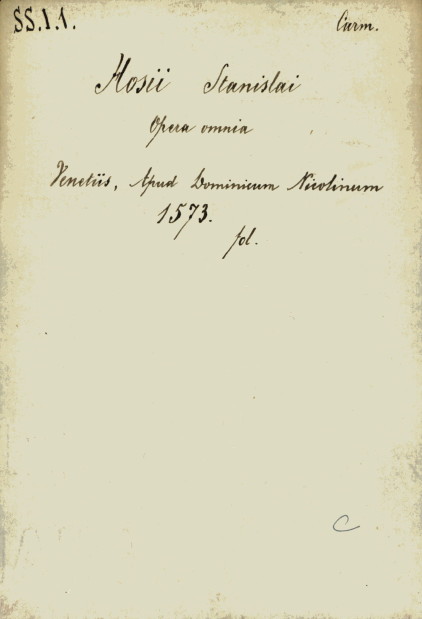 SS.I.1. Carm.
Hosii Stanislai
Opera omnia
Venetiis, Apud Dominicum Nicolinum
1573.
fol.
C